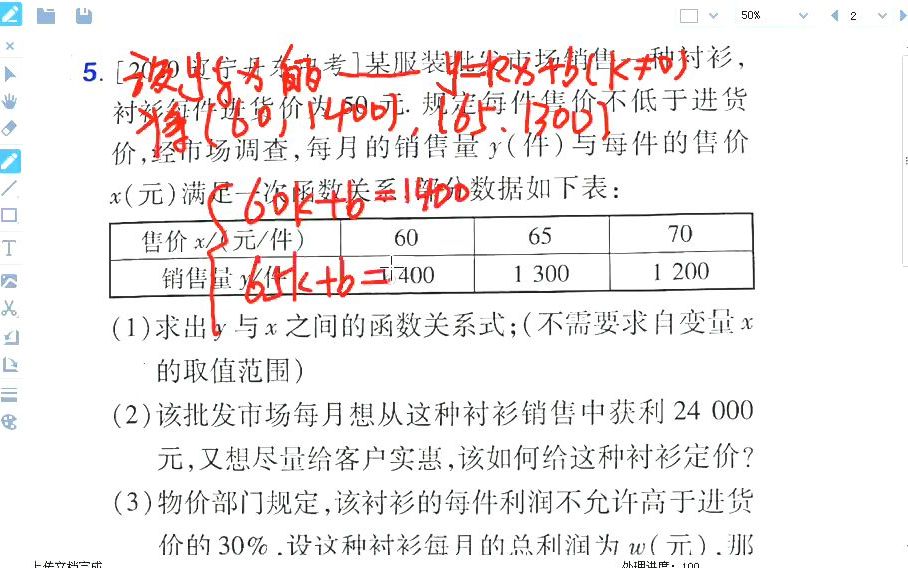 50%
2
5. [2020 辽宁丹东中考]某服装批发市场销售一种衬衫,
设y与x y=kx+b(k≠0)
衬衫每件进货价为 50 元. 规定每件售价不低于进货
将(60,1400),(65,1300)
价,经市场调查,每月的销售量 y(件)与每件的售价
x(元)满足一次函数关系,部分数据如下表:
60k+b=1400
售价 x/(元/件) 60 65 70
销售量 y/件 1 400 1 300 1 200
65k+b=
(1)求出 y 与 x 之间的函数关系式;(不需要求自变量 x
的取值范围)
(2)该批发市场每月想从这种衬衫销售中获利 24 000
元,又想尽量给客户实惠,该如何给这种衬衫定价?
(3)物价部门规定,该衬衫的每件利润不允许高于进货
价的 30%,设这种衬衫每月的总利润为 w(元),那
上传文档完成 处理进度: 100